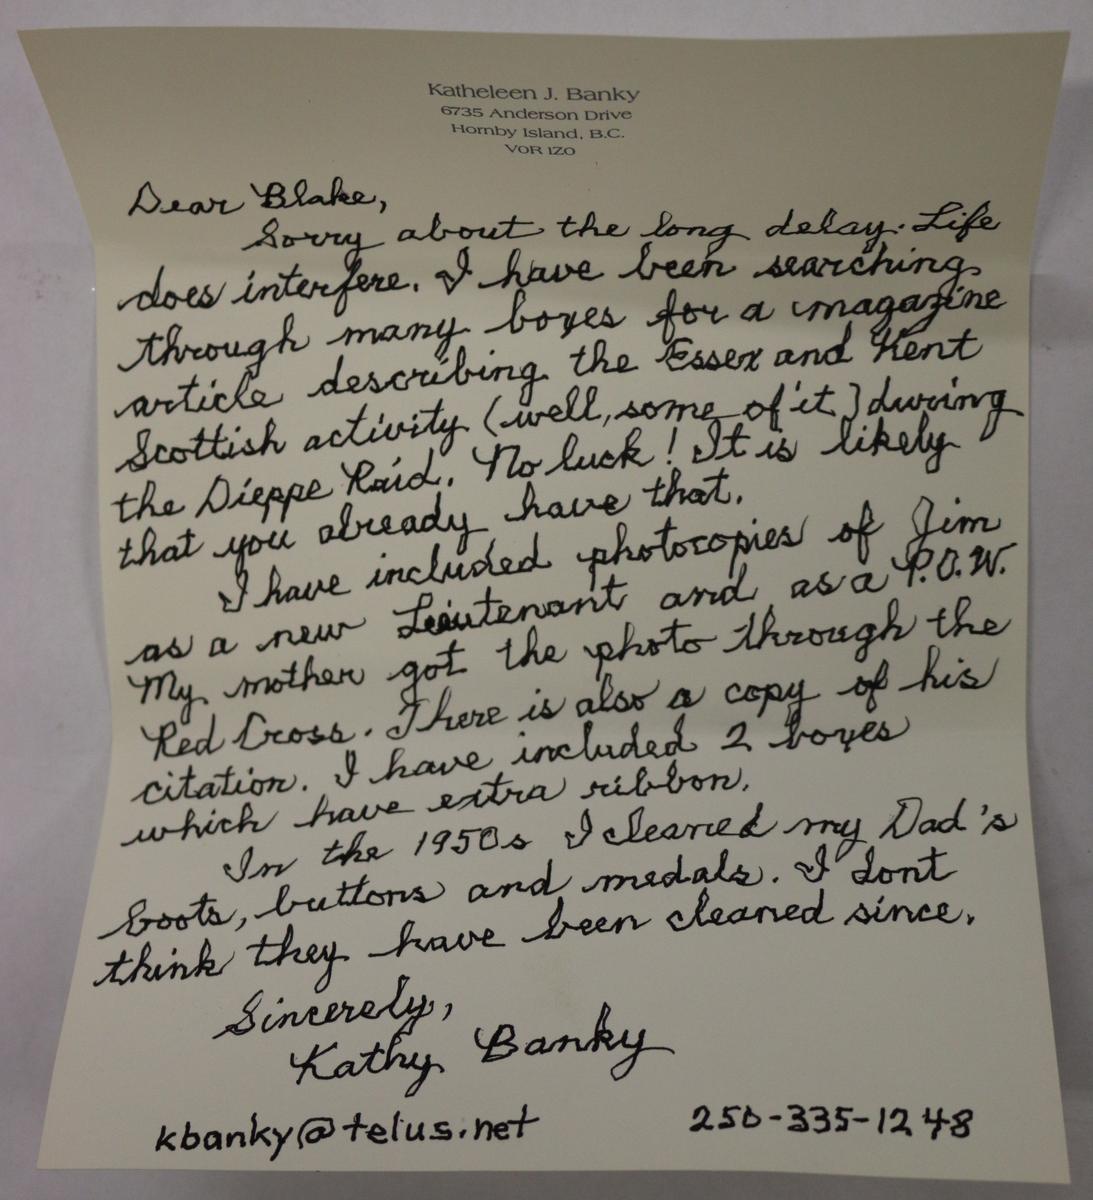 Katheleen J. Banky
6735 Anderson Drive
Hornby Island, B.C.
V0R 1Z0
Dear Blake,
Sorry about the long delay. Life
does interfere. I have been searching
through many boxes for a magazine
article describing the Essex and Kent
Scottish activity (well, some of it) during
the Dieppe Raid. No luck! It is likely
that you already have that.
I have included photocopies of Jim
as a new Lieutenant and as a P.O.W.
My mother got the photo through the
Red Cross. There is also a copy of his
citation. I have included 2 boxes
which have extra ribbon.
In the 1950s I cleaned my Dad's
boots, buttons and medals. I dont
think they have been cleaned since.
Sincerely,
Kathy Banky
kbanky@telus.net 250-335-1248